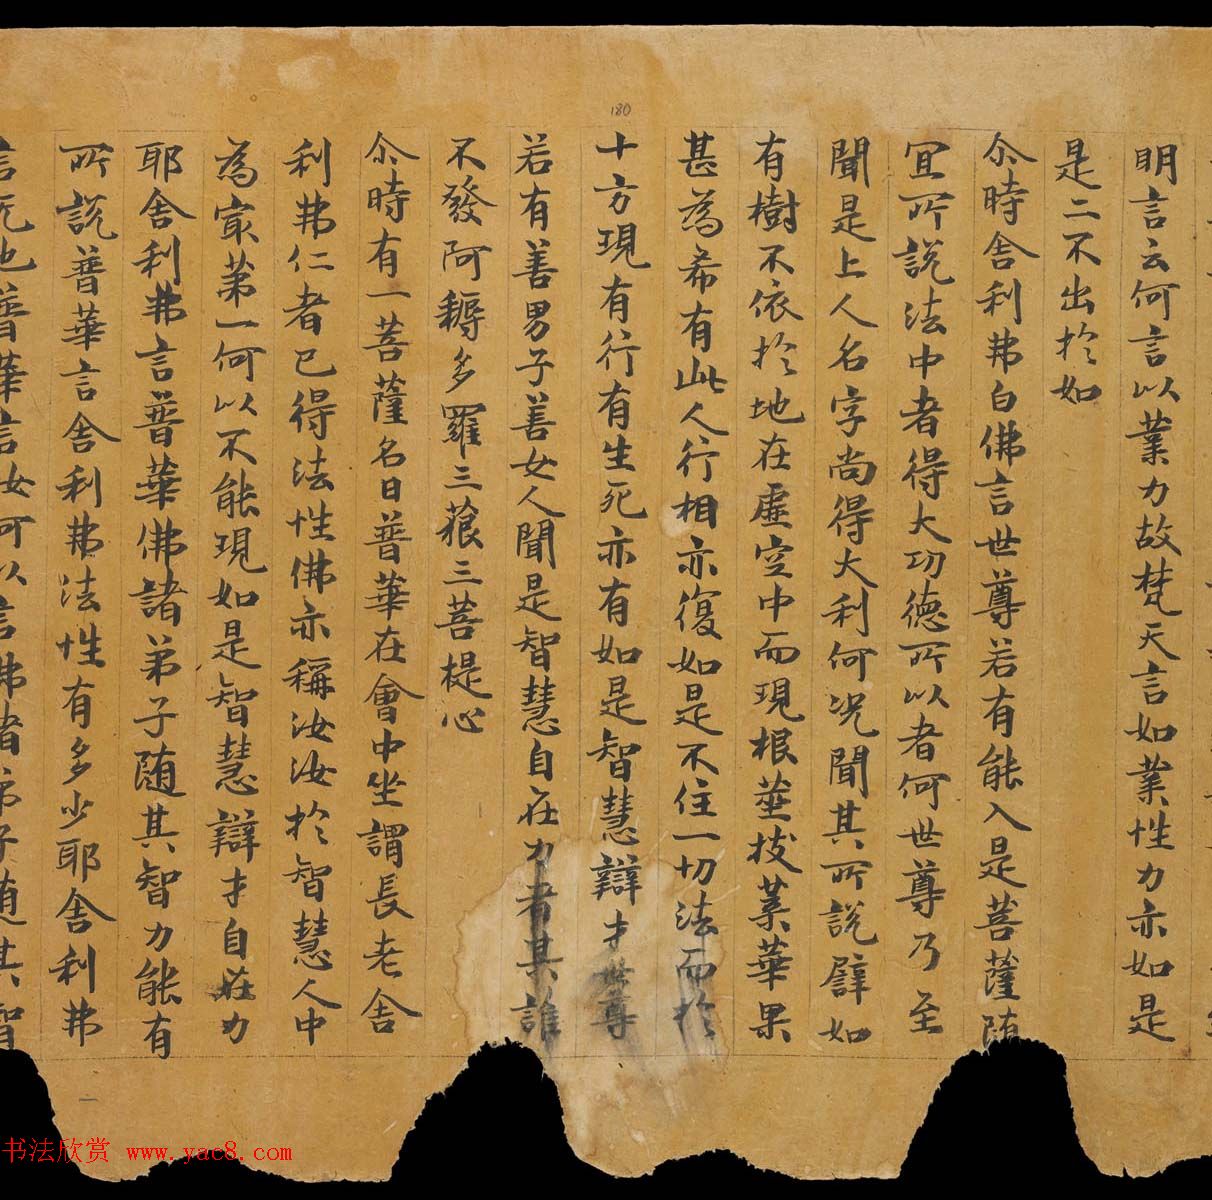 180
明言云何言以業力故梵天言如業性力亦如是
是二不出於如
尒時舎利弗白佛言世尊若有能入是菩薩随
宜所說法中者得大功德所以者何世尊乃至
聞是上人名字尚得大利何况聞其所說譬如
有樹不依於地在虛空中而現根莖枝葉華果
甚為希有此人行相亦復如是不住一切法而於
十方現有行有生死亦有如是智慧辯才世尊
若有善男子善女人聞是智慧自在力者其誰
不發阿耨多羅三藐三菩提心
尒時有一菩薩名曰普華在會中坐謂長老舎
利弗仁者已得法性佛亦稱汝汝於智慧人中
為㝡苐一何以不能現如是智慧辯才自在力
耶舎利弗言普華佛諸弟子随其智力能有
所說普華言舎利弗法性有多少耶舎利弗
言无也普華言汝何以言佛諸弟子随其智
一
书法欣赏 www.yac8.com